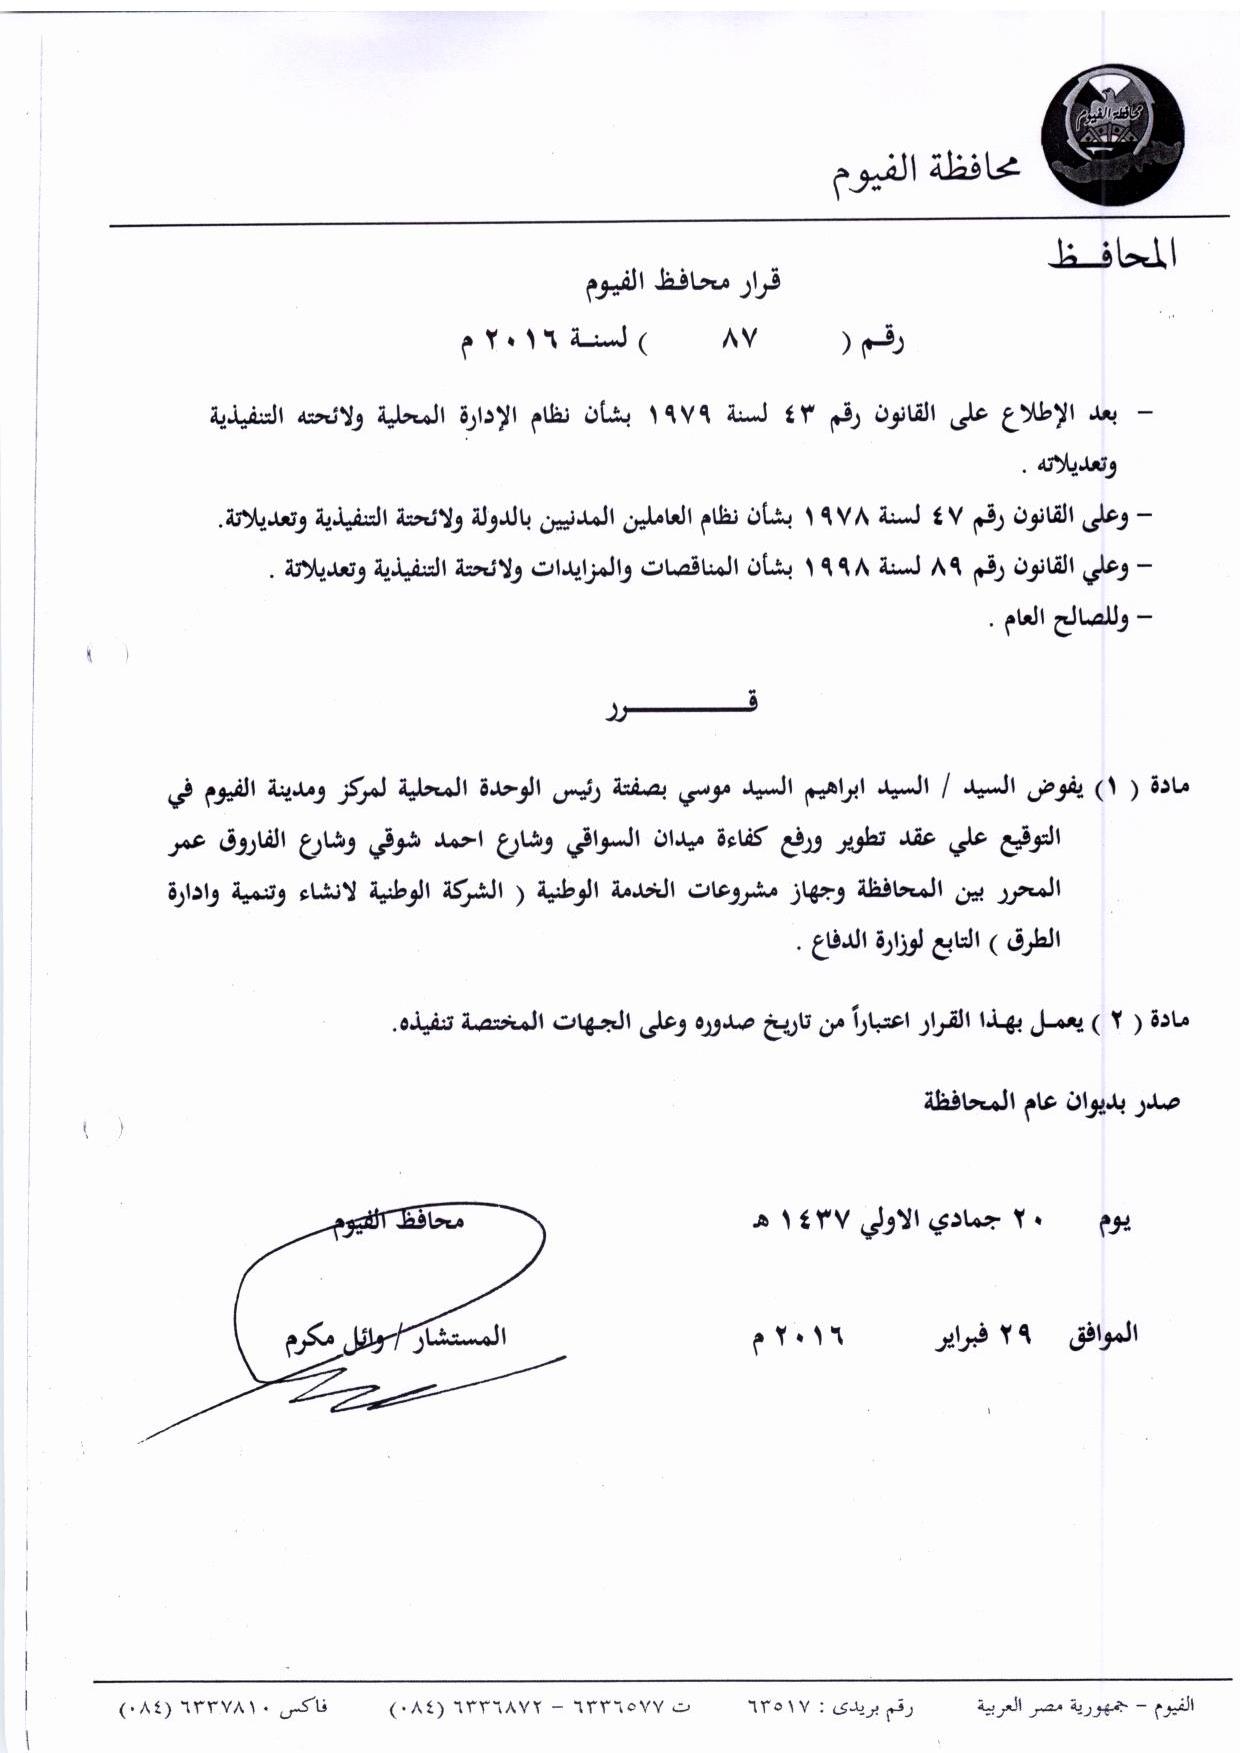 محافظة الفيوم
محافظة الفيوم
المحافـــظ
قرار محافظ الفيوم
رقـم ( ٨٧ ) لسنـة ٢٠١٦ م
– بعد الإطلاع على القانون رقم ٤٣ لسنة ١٩٧٩ بشأن نظام الإدارة المحلية ولائحته التنفيذية
وتعديلاته .
– وعلى القانون رقم ٤٧ لسنة ١٩٧٨ بشأن نظام العاملين المدنيين بالدولة ولائحتة التنفيذية وتعديلاتة.
– وعلي القانون رقم ٨٩ لسنة ١٩٩٨ بشأن المناقصات والمزايدات ولائحتة التنفيذية وتعديلاتة .
– وللصالح العام .
قـــــــــرر
مادة ( ١ ) يفوض السيد / السيد ابراهيم السيد موسي بصفتة رئيس الوحدة المحلية لمركز ومدينة الفيوم في
التوقيع علي عقد تطوير ورفع كفاءة ميدان السواقي وشارع احمد شوقي وشارع الفاروق عمر
المحرر بين المحافظة وجهاز مشروعات الخدمة الوطنية ( الشركة الوطنية لانشاء وتنمية وادارة
الطرق ) التابع لوزارة الدفاع .
مادة ( ٢ ) يعمـل بهـذا القرار اعتباراً من تاريخ صدوره وعلى الجهات المختصة تنفيذه.
صدر بديوان عام المحافظة
يوم ٢٠ جمادي الاولي ١٤٣٧ هـ
محافظ الفيوم
الموافق ٢٩ فبراير ٢٠١٦ م
المستشار / وائل مكرم
الفيوم – جمهورية مصر العربية رقم بريدى : ٦٣٥١٧ ت ٦٣٣٦٥٧٧ – ٦٣٣٦٨٧٢ (٠٨٤) فاكس ٦٣٣٧٨١٠ (٠٨٤)